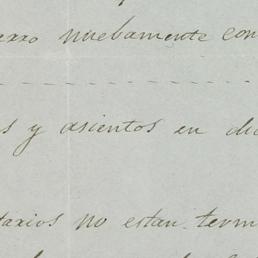 erro nuebamente con
s y asientos en di
tarios no estan term